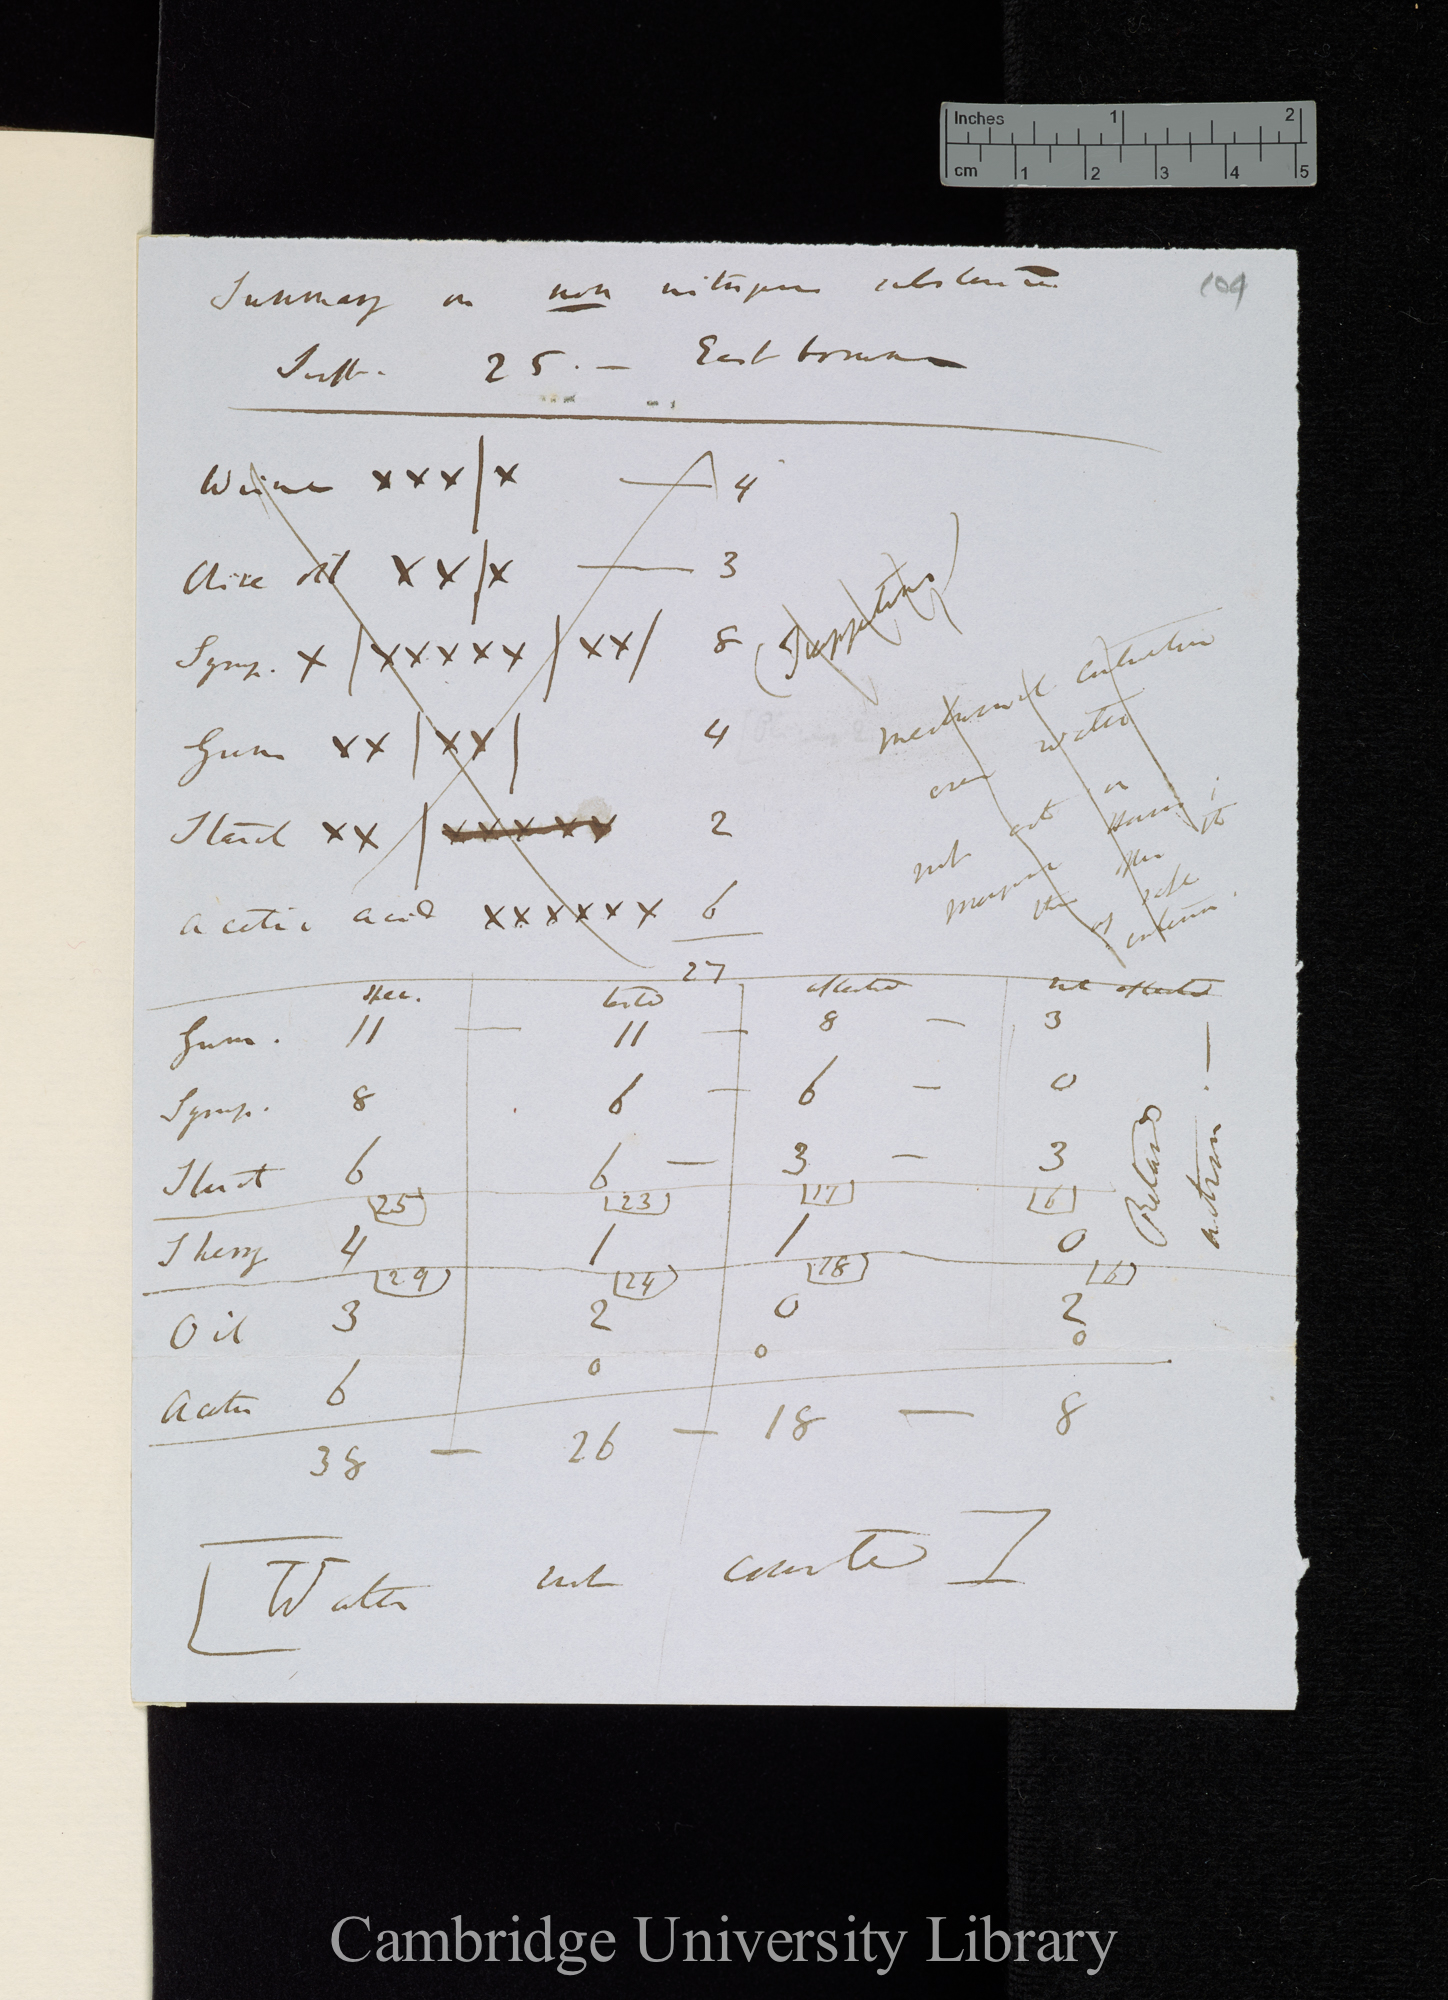 Inches 1 2
cm 1 2 3 4 5
104
Summary on non nitrogenous substances
Sept. 25. — Eastbourne
Wine xxx|x — 4
Olive oil xx|x — 3
Syrup. x|xxxxx|xx| 8
Gum xx|xx| 4
Starch xx|xxxxx 2
Acetic acid xxxxxx 6
27
mechanical
even water
not act or
spec. tested affected not affected
Gum. 11 — 11 — 8 — 3
Syrup. 8 6 — 6 — 0
Starch 6 6 — 3 — 3
25 23 17 6
Sherry 4 1 1 0
29 24 18 6
Oil 3 2 0 2
Acetic 6 0 0 0
38 — 26 — 18 — 8
Retards
action. —
[Water not counted]
Cambridge University Library